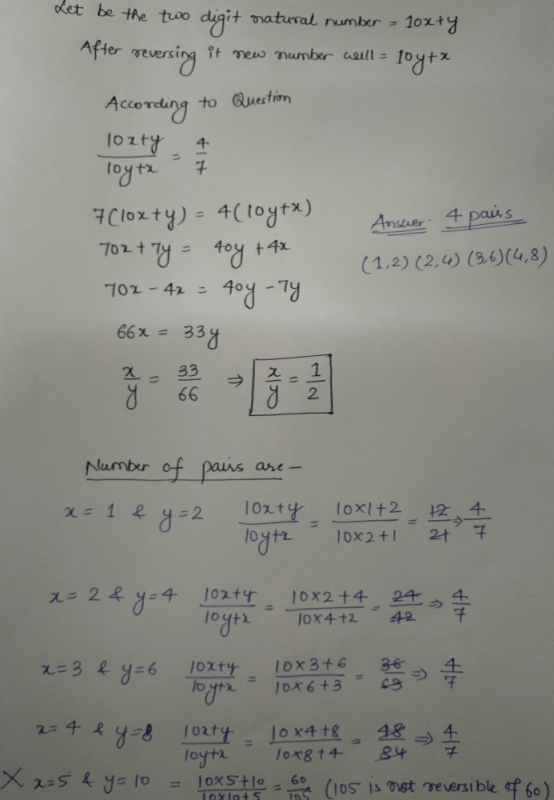 Let be the two digit natural number = 10x+y
After reversing it new number will = 10y+x
According to Question
10x+y / 10y+x = 4/7
7(10x+y) = 4(10y+x)
70x + 7y = 40y + 4x
70x - 4x = 40y - 7y
66x = 33y
x/y = 33/66 ⇒ x/y = 1/2
Answer. 4 pairs
(1,2) (2,4) (3,6) (4,8)
Number of pairs are -
x = 1 & y = 2 10x+y / 10y+x = 10×1+2 / 10×2+1 = 12/21 ⇒ 4/7
x = 2 & y = 4 10x+y / 10y+x = 10×2+4 / 10×4+2 = 24/42 ⇒ 4/7
x = 3 & y = 6 10x+y / 10y+x = 10×3+6 / 10×6+3 = 36/63 ⇒ 4/7
x = 4 & y = 8 10x+y / 10y+x = 10×4+8 / 10×8+4 = 48/84 ⇒ 4/7
X x = 5 & y = 10 = 10×5+10 / 10×10+5 = 60/105 (105 is not reversible of 60)